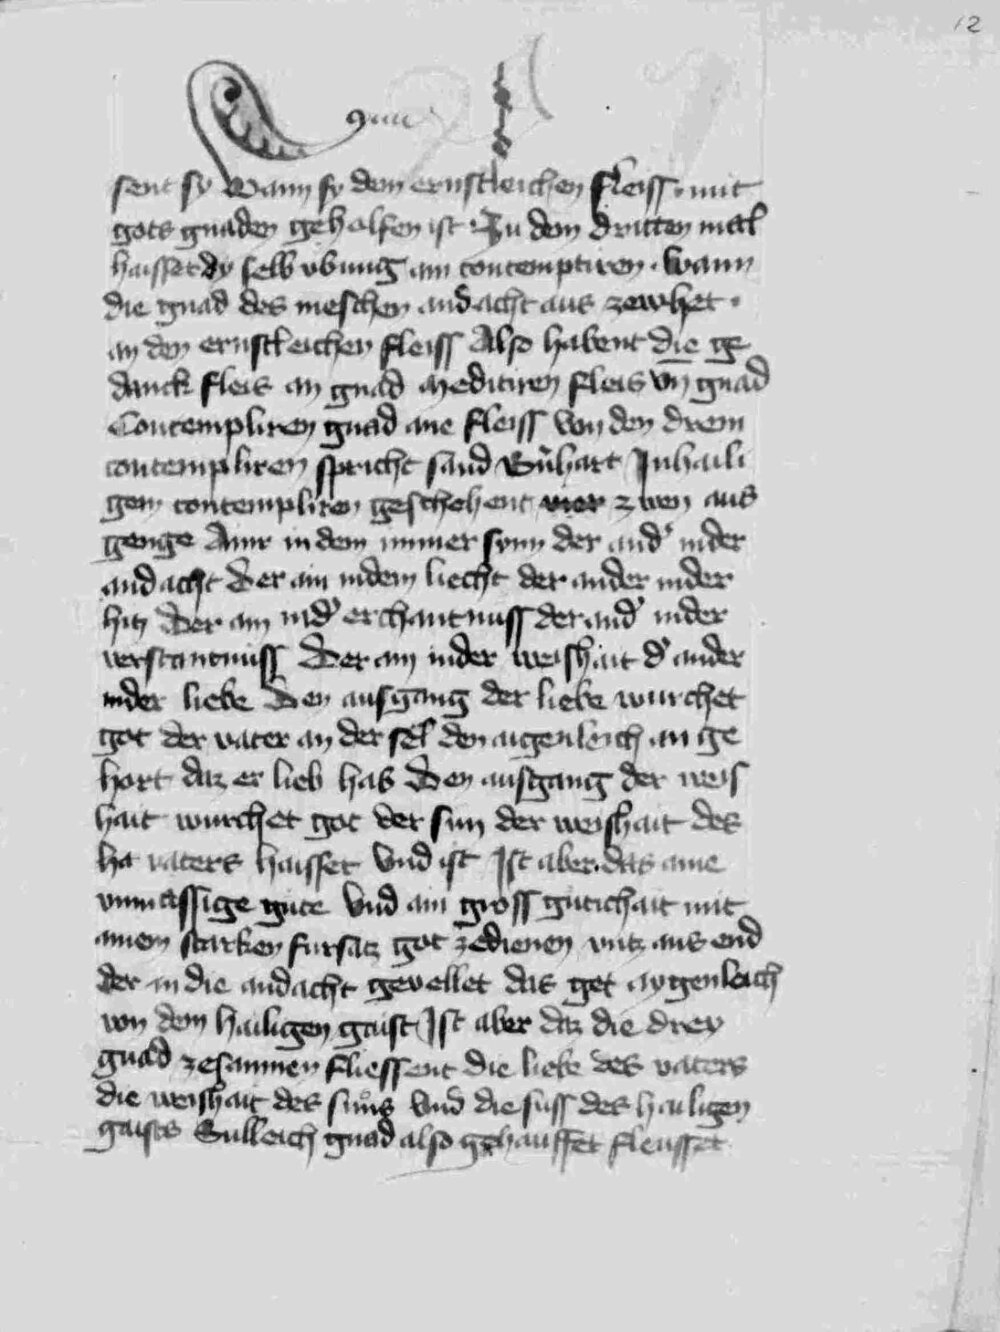 12
sent sy Wann sy dem ernstleichen fleiss · mit
gots gnaden geholfen ist · Zu dem dritten mal
haisset dy selb vbung ain contempliren · Wann
die gnad des meschen andacht aus zewhet ·
an den ernstleichen fleiss Also habent die ge
danck fleis an gnad Meditiren fleis vn gnad
Contempliren gnad ane fleiss Von den drein
contempliren spricht sand Bnhart In haili
gem contempliren geschehent zwen aus
genge Ainr in dem inner synn der and' in der
andacht Der ain in dem liecht der ander in der
hitz Der ain in d' erchantnuss der and' in der
verstantnuss Der ain in der weishait d' ander
in der liebe Den ausgang der liebe wurchet
got der vater an der sel den aigenleich an ge
hort daz er lieb hab Den ausgang der weis
hait wurchet got der sun der weishait des
vaters haisset Vnd ist Ist aber das aine
vnmassige gute Vnd ain gross gutichait mit
ainem starken fursatz got zedienen vntz aus end
der in die andacht gevellet das get aygenleich
von dem hailigen gaist Ist aber daz die drey
gnad zesamnen fliessent die liebe des vaters
die weishait des suns Vnd die suss des hailigen
gaists Sulleich gnad also gehauffet fleusset